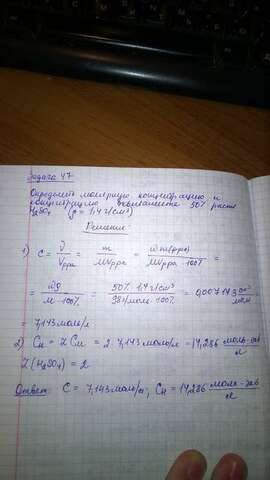 Задача 47
Определить молярную концентрацию и
концентрацию эквивалента 50% раств
H₂SO₄ (ρ = 1,4 г/см³)
Решение:
1) C = ν/Vр-ра = m/MVр-ра = ω m(р-ра)/MVр-ра · 100% =
= ωρ/M · 100% = 50% · 1,4 г/см³/98 г/моль · 100% = 0,007143
= 7,143 моль/л
2) Cн = Z Cм = 2 · 7,143 моль/л = 14,286 моль-экв/л
Z (H₂SO₄) = 2
Ответ: C = 7,143 моль/л; Cн = 14,286 моль-экв/л